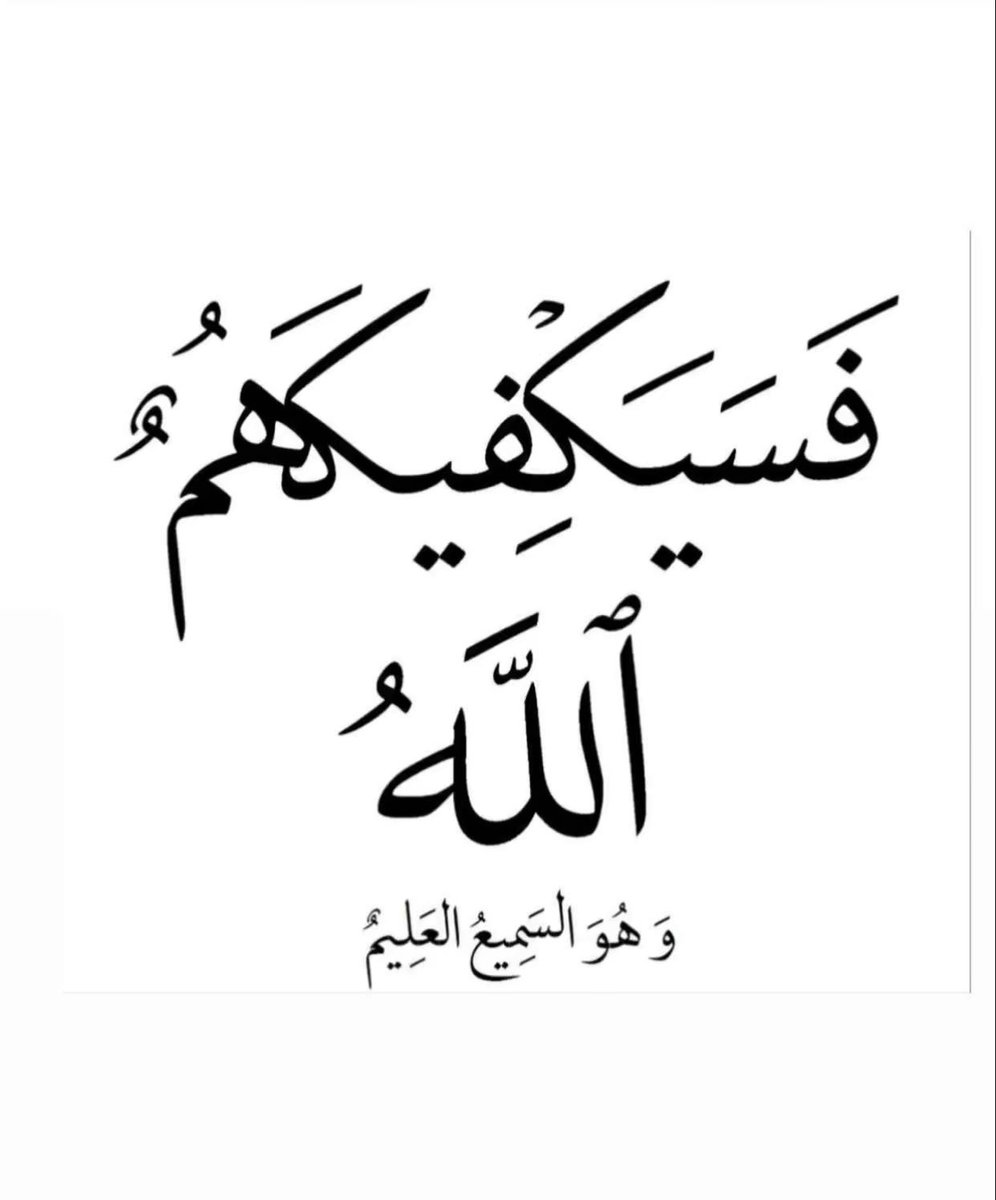 فَسَيَكْفِيكَهُمُ
ٱللَّهُ
وَ هُوَ السَمِيعُ العَلِيمُ